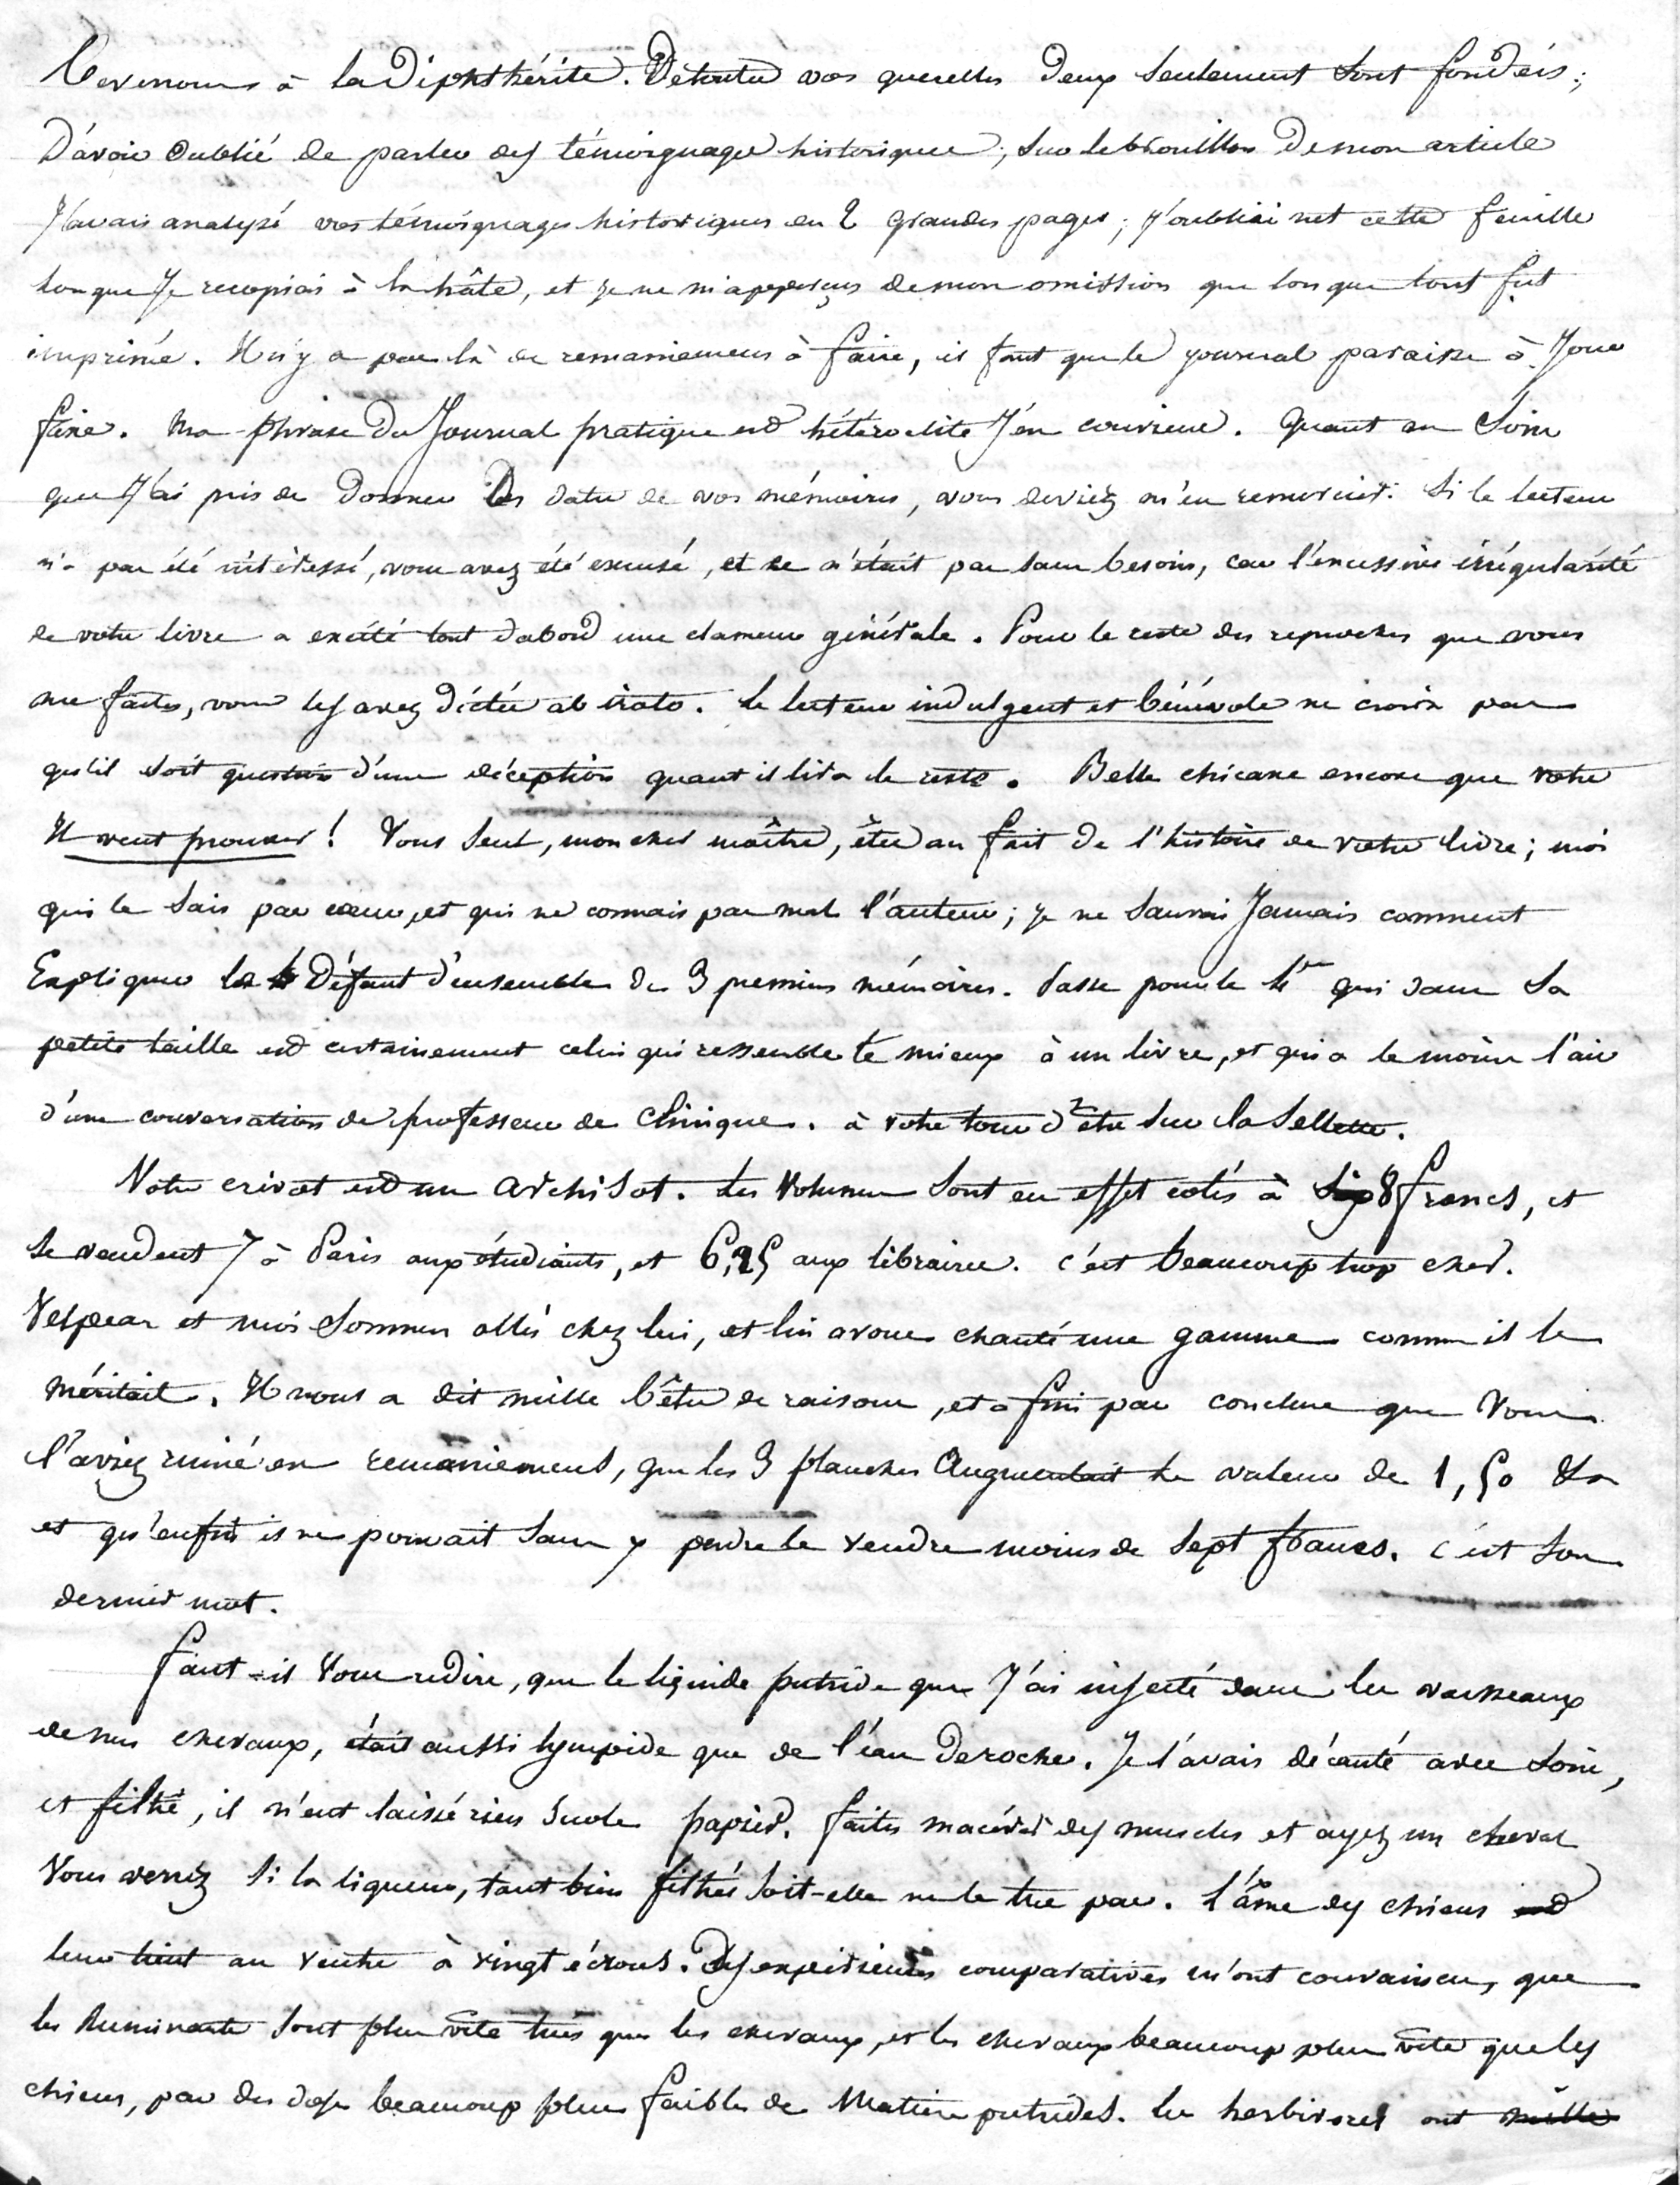 Revenons à la Diphthérite. De toutes vos querelles deux seulement sont fondées ;
D'avoir oublié de parler des témoignages historiques ; sur le brouillon de mon article
J'avais analysé vos témoignages historiques en 2 grandes pages ; j'oubliai net cette feuille
lorsque Je recopiais à la hâte, et je ne m'apperçus de mon omission que lorsque tout fut
imprimé. Il n'y a pas là de remaniemens à faire, il faut que le journal paraisse à Jour
fixe. Ma phrase du Journal pratique est hétéroclite J'en conviens. Quant au Soin
que J'ai pris de donner les dates de vos mémoires, vous devriez m'en remercier. Si le lecteur
n'a pas été intéressé, vous avez été excusé, et ce n'était pas sans besoin, car l'excessive irrégularité
de votre livre a excité tout d'abord une clameur générale. Pour le reste des reproches que vous
me faites, vous les avez dictés ab irato. Le lecteur indulgent et bénévole ne croira pas
qu'il soit question d'une déception quant il lira le reste. Belle chicane encore que votre
Il veut prouver ! Vous seul, mon cher maître, êtes au fait de l'histoire de votre livre ; moi
qui le sais par cœur, et qui ne connais pas mal l'auteur ; je ne saurais Jamais comment
Expliquer le Défaut d'ensemble des 3 premiers mémoires. Passe pour le 4e qui dans sa
petite taille est certainement celui qui ressemble le mieux à un livre, et qui a le moins l'air
d'une conversation de professeur de Clinique. à votre tour d'être sur la Sellette.
Votre crivot est un archisot. Les Volumes sont en effet cotés à 8 francs, et
se vendent 7 à Paris aux étudiants, et 6,25 aux libraires. C'est beaucoup trop cher.
Velpeau et moi sommes allés chez lui, et lui avons chanté une gamme comme il le
méritait. Il nous a dit mille bêtes de raisons, et a fini par conclure que Vous
l'aviez ruiné en remaniemens, que les 3 planches Augmentait la valeur de 1,50
et qu'enfin il ne pouvait sans y perdre le vendre moins de sept francs. C'est son
dernier mot.
Faut-il vous redire, que le liquide putride que J'ai injecté dans les vaisseaux
de nos chevaux, était aussi lympide que de l'eau de roche. Je l'avais décanté avec soin,
et filtré, il n'eut laissé rien sur le papier. Faites macérer des muscles et ayez un cheval
Vous verrez si la liqueur, tant bien filtrée soit-elle ne le tue pas. L'âme des chiens
leur tient au ventre à vingt écrous. Des expériences comparatives m'ont convaincu, que
les Ruminants sont plus vite tués que les chevaux, et les chevaux beaucoup plus vite que les
chiens, par des doses beaucoup plus faibles de Matières putrides. les herbivores ont mille